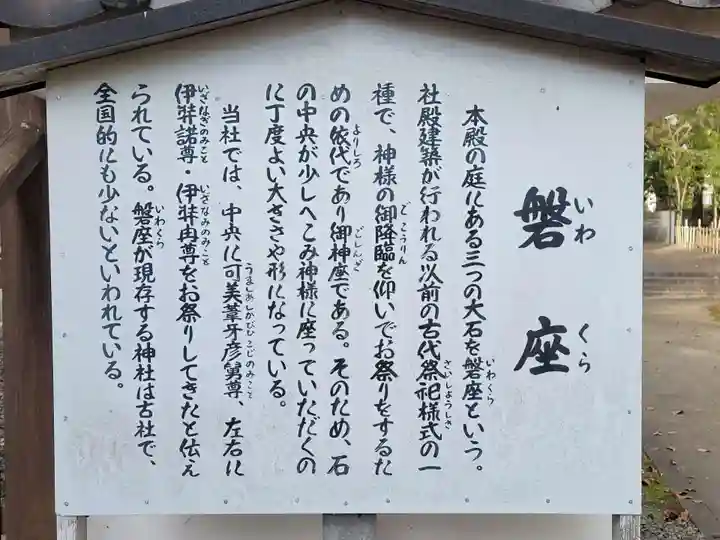 磐座
いわくら
本殿の庭にある三つの大石を磐座という。
いわくら
社殿建築が行われる以前の古代祭祀様式の一
さいしようしき
種で、神様の御降臨を仰いでお祭りをするた
ごこうりん
めの依代であり御神座である。そのため、石
よりしろ
ごしんざ
の中央が少しへこみ神様に座っていただくの
に丁度よい大きさや形になっている。
当社では、中央に可美葦牙彦舅尊、左右に
うましあしかびひこじのみこと
伊弉諾尊・伊弉冉尊をお祭りしてきたと伝え
いざなぎのみこと
いざなみのみこと
られている。磐座が現存する神社は古社で、
いわくら
全国的にも少ないといわれている。